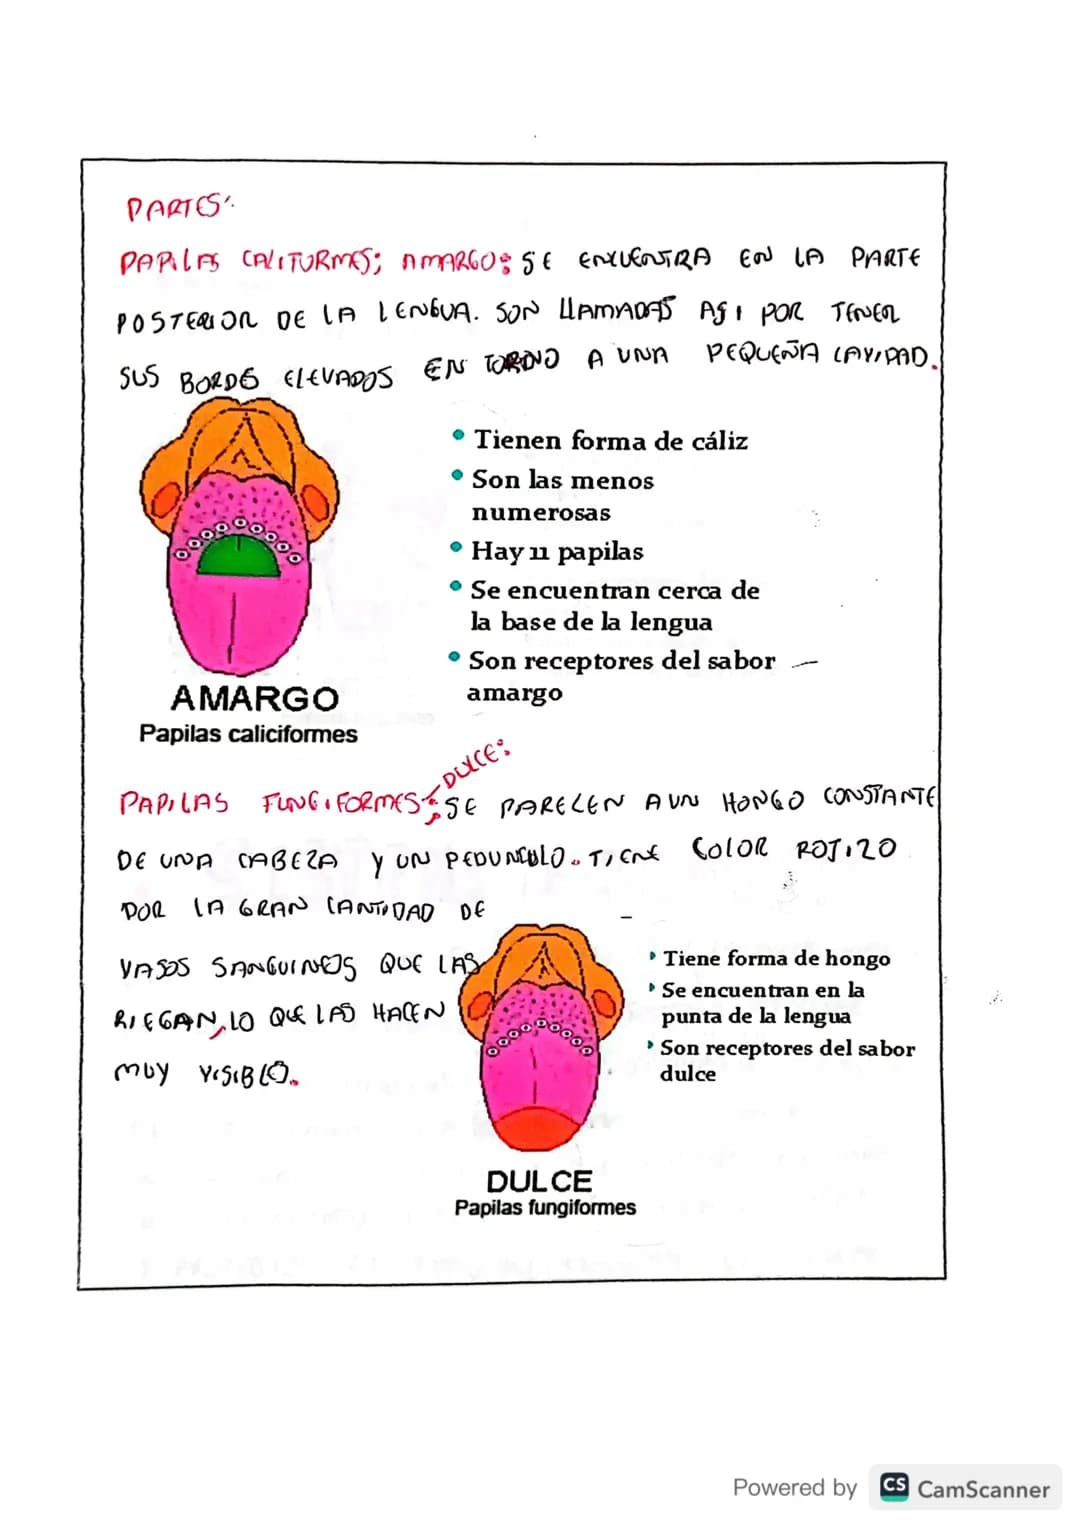 PARTES:
PAPILAS CALITURMES; AMARGO: SE ENCUENTRA EN LA PARTE
POSTERIOR DE LA LENGUA. SON LLAMADAS ASI POR TENER
SUS BORDES ELEVADOS EN TORNO A UNA PEQUEÑA CAVIDAD.
• Tienen forma de cáliz
• Son las menos
numerosas
• Hay 11 papilas
• Se encuentran cerca de
la base de la lengua
• Son receptores del sabor
amargo
AMARGO
Papilas caliciformes
DULCE:
PAPILAS FUNGIFORMES; SE PARECEN A UN HONGO CONSTANTE
DE UNA CABEZA Y UN PEDUNCULO. TIENE COLOR ROJIZO
POR LA GRAN CANTIDAD DE
VASOS SANGUINEOS QUE LAS
RIEGAN, LO QUE LAS HACEN
MUY VISIBLO.
Tiene forma de hongo
Se encuentran en la
punta de la lengua
Son receptores del sabor
dulce
DULCE
Papilas fungiformes
Powered by CS CamScanner